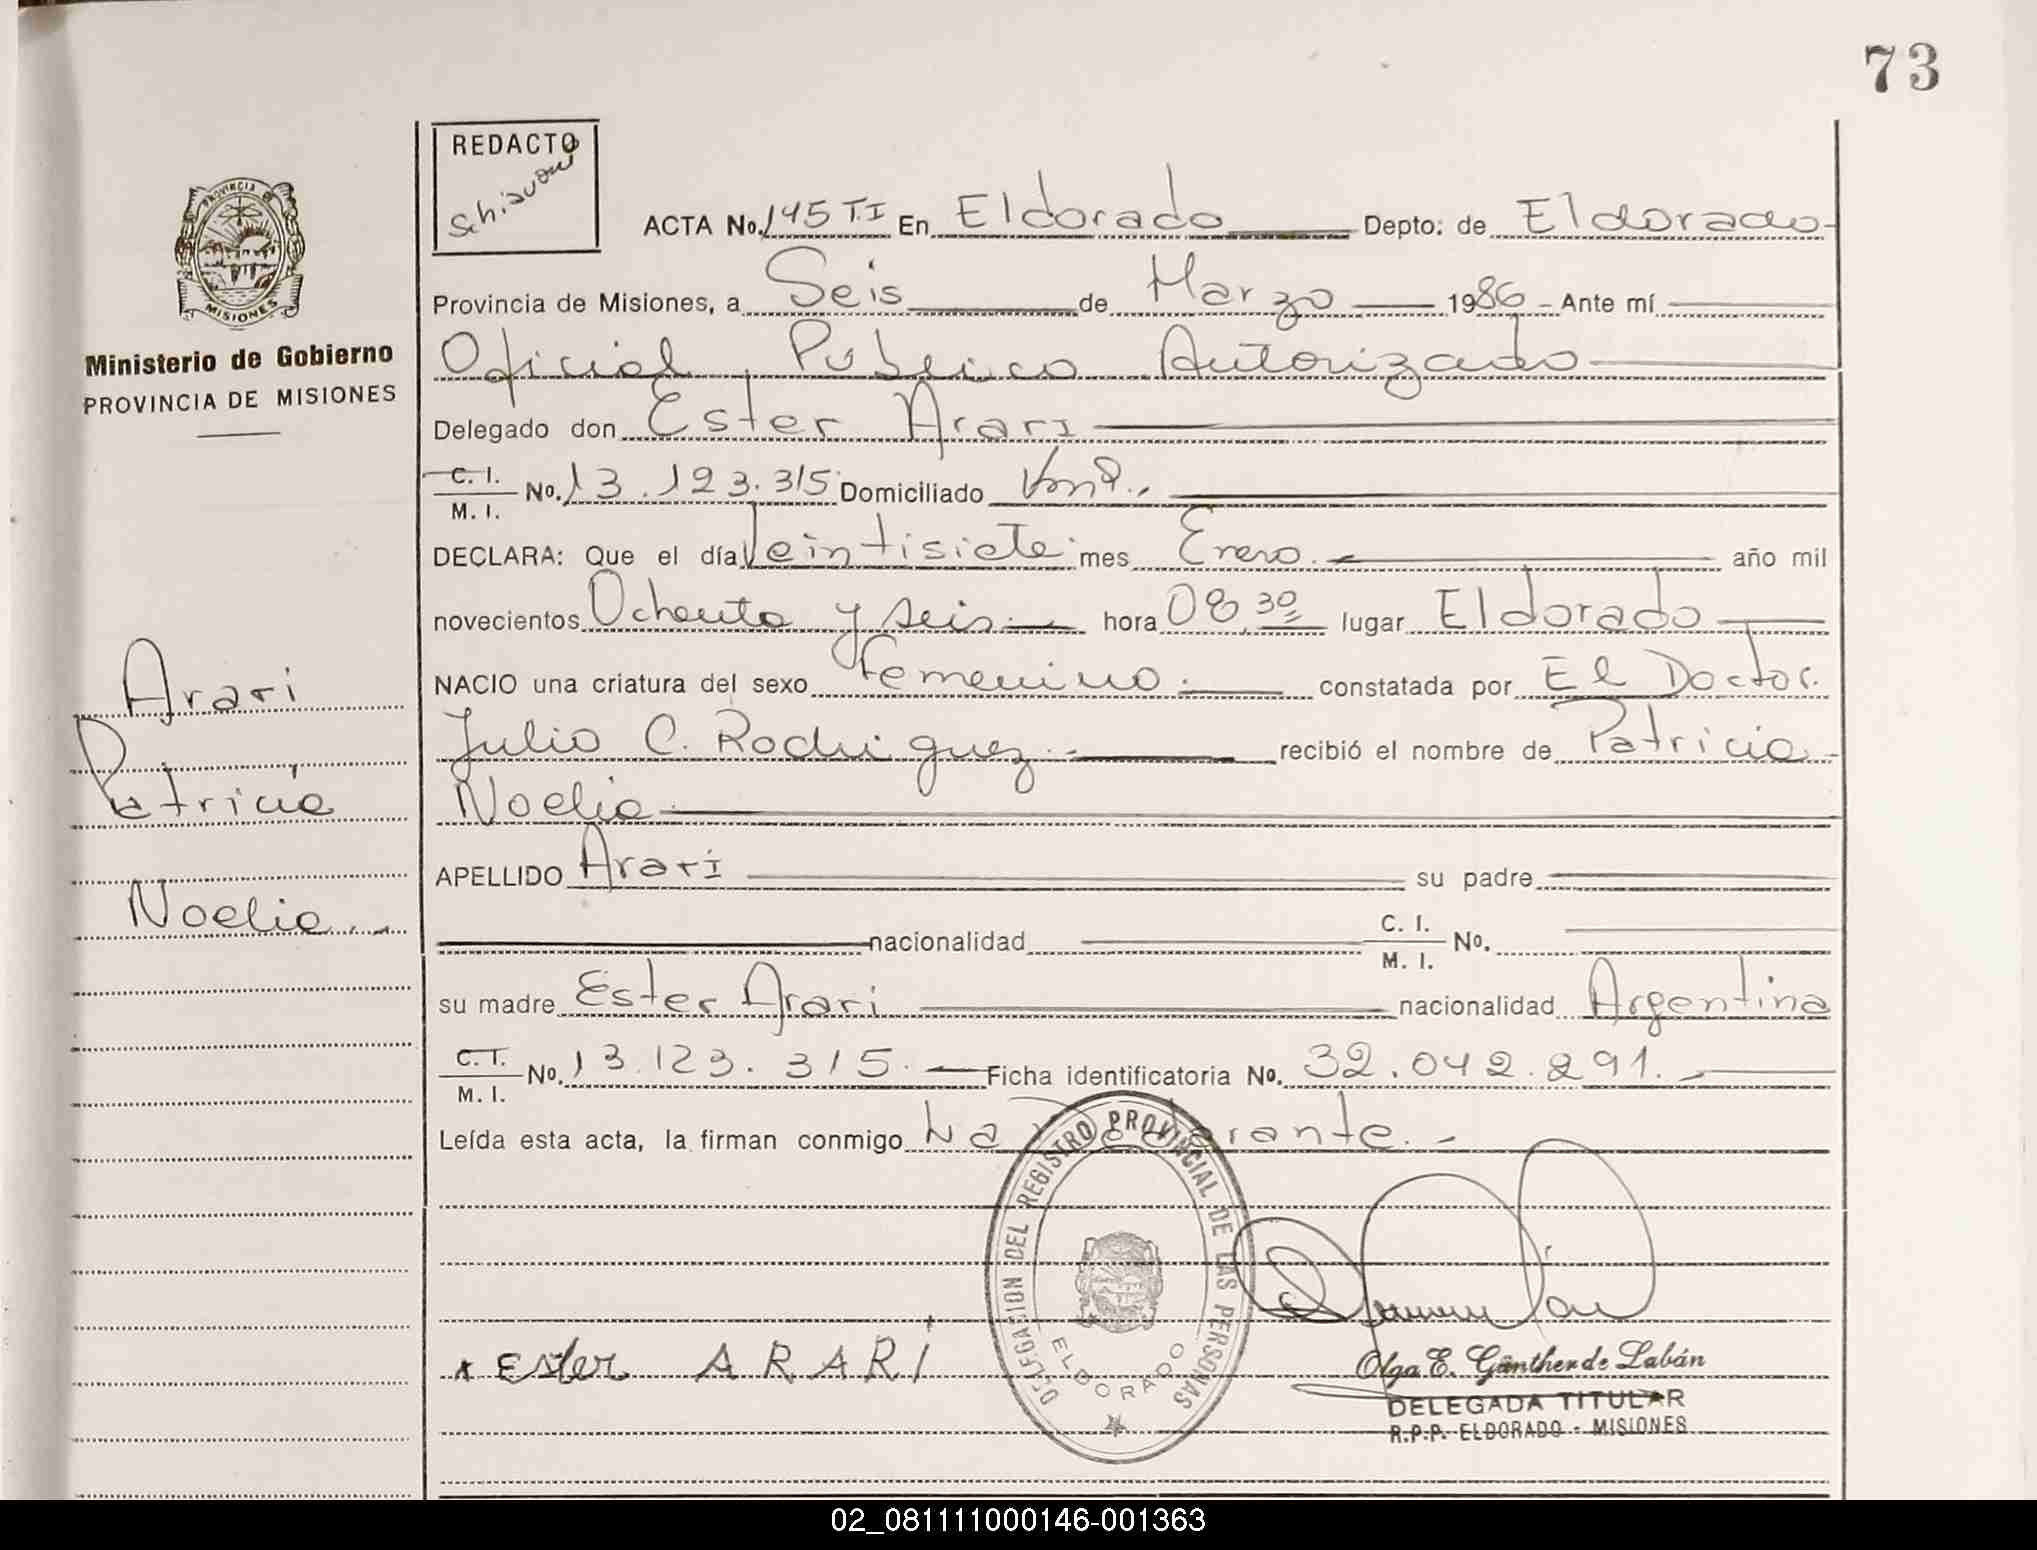 73
REDACTO
Schiavoni
PROVINCIA DE
MISIONES
Ministerio de Gobierno
PROVINCIA DE MISIONES
ACTA No. 145 T.I En Eldorado Depto: de Eldorado
Provincia de Misiones, a Seis de Marzo 1986 Ante mí
Oficial Público Autorizado
Delegado don Ester Arari
C. I. M. I. No. 13.123.315 Domiciliado
DECLARA: Que el día Veintisiete mes Enero año mil
novecientos Ochenta y seis hora 08,30 lugar Eldorado
NACIO una criatura del sexo Femenino constatada por El Doctor
Julio C. Rodriguez recibió el nombre de Patricia
Noelia
APELLIDO Arari su padre
nacionalidad C. I. M. I. No.
su madre Ester Arari nacionalidad Argentina
C. I. M. I. No. 13.123.315. Ficha identificatoria No. 32.042.291.
Leída esta acta, la firman conmigo La Declarante.
Arari
Patricia
Noelia
DELEGACION DEL REGISTRO PROVINCIAL DE LAS PERSONAS
ELDORADO
x Ester ARARI
Olga E. Günther de Labán
DELEGADA TITULAR
R.P.P. ELDORADO - MISIONES
02_081111000146-001363